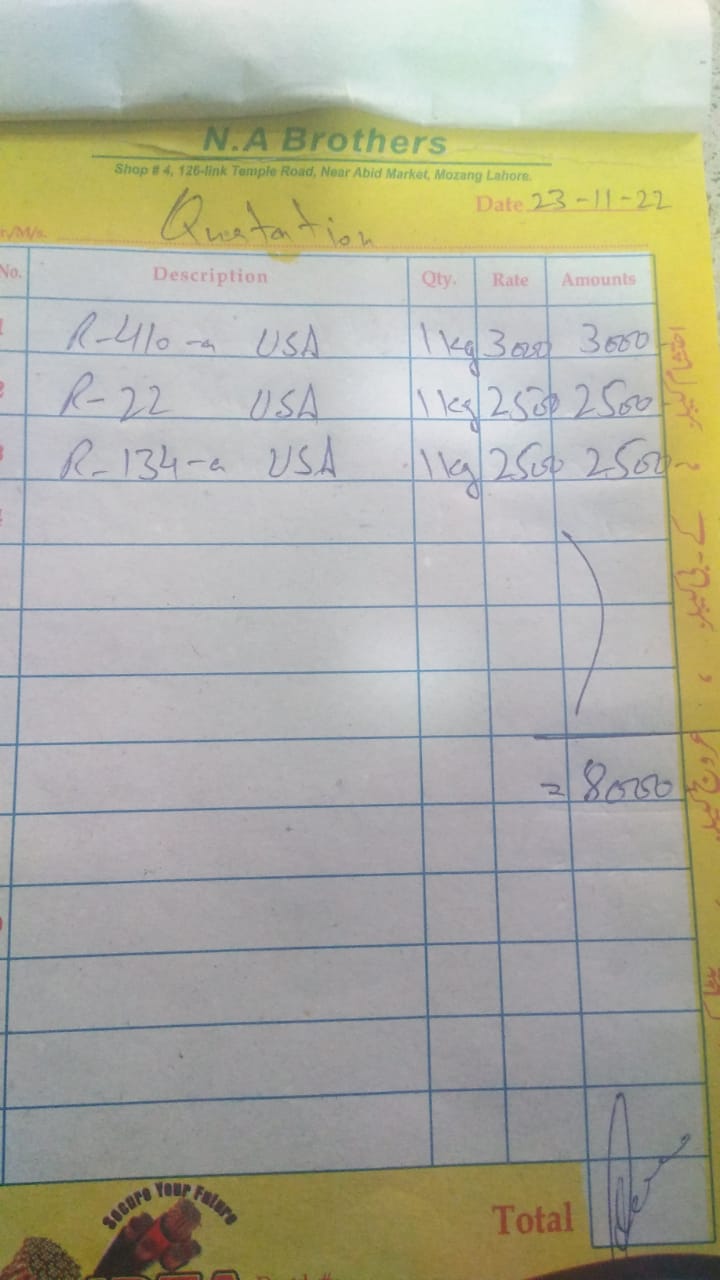 N.A Brothers
Shop # 4, 126-link Temple Road, Near Abid Market, Mozang Lahore.
Date 23-11-22
r./M/s. Quatation
No. Description Qty. Rate Amounts
1 R-410-a USA 1kg 3000 3000
2 R-22 USA 1kg 2500 2500
3 R-134-a USA 1kg 2500 2500
= 8000
Total
Secure Your Future